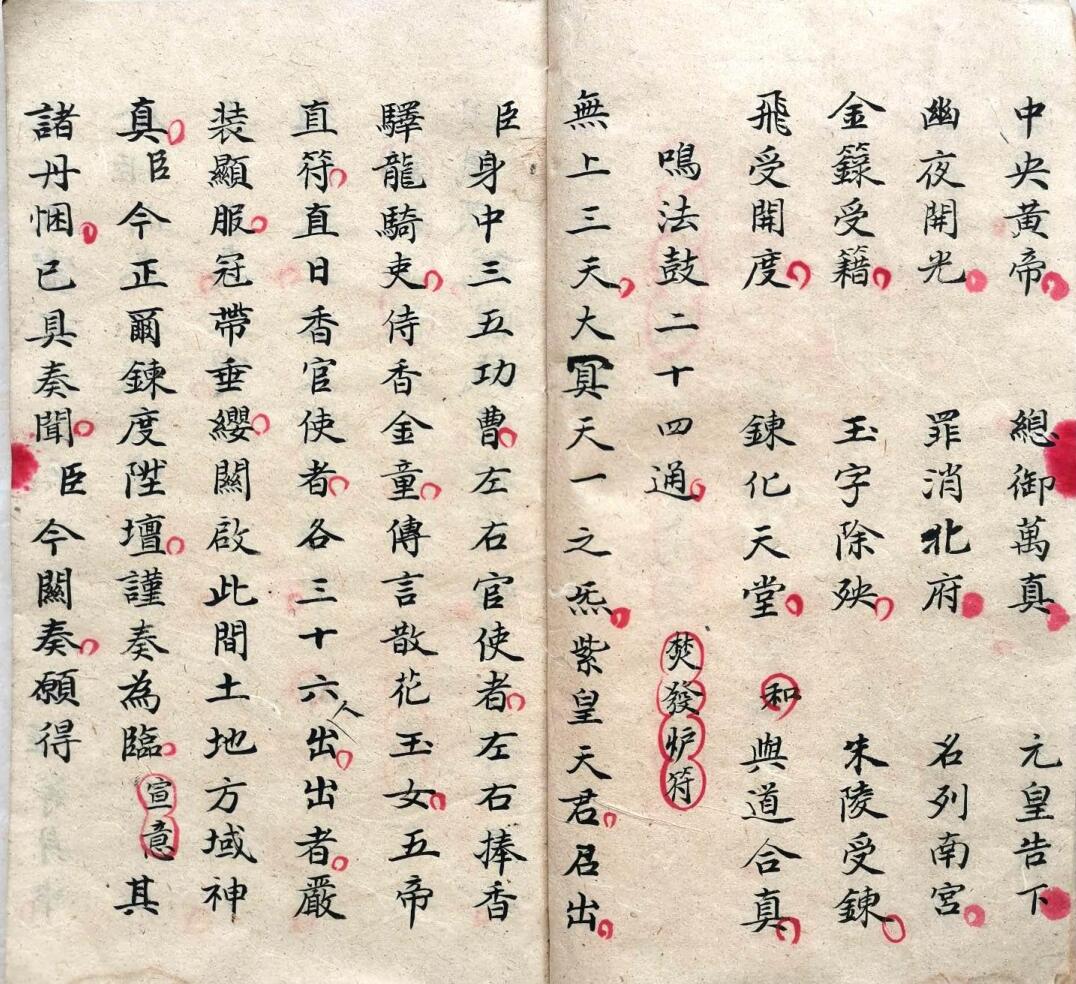 中央黃帝 總御萬真 元皇告下
幽夜開光 罪消北府 名列南宮
金籙受籍 玉字除殃 朱陵受鍊
飛受開度 鍊化天堂 和 與道合真
鳴法鼓二十四通 焚發炉符
無上三天大冥天一之炁紫皇天君召出
臣身中三五功曹左右官使者左右捧香
驛龍騎吏侍香金童傳言散花玉女五帝
直符直日香官使者各三十六人出出者嚴
装顯服冠帶垂纓關啟此間土地方域神
真臣今正爾鍊度陞壇謹奏為臨宣意其
諸丹悃已具奏聞臣今關奏願得